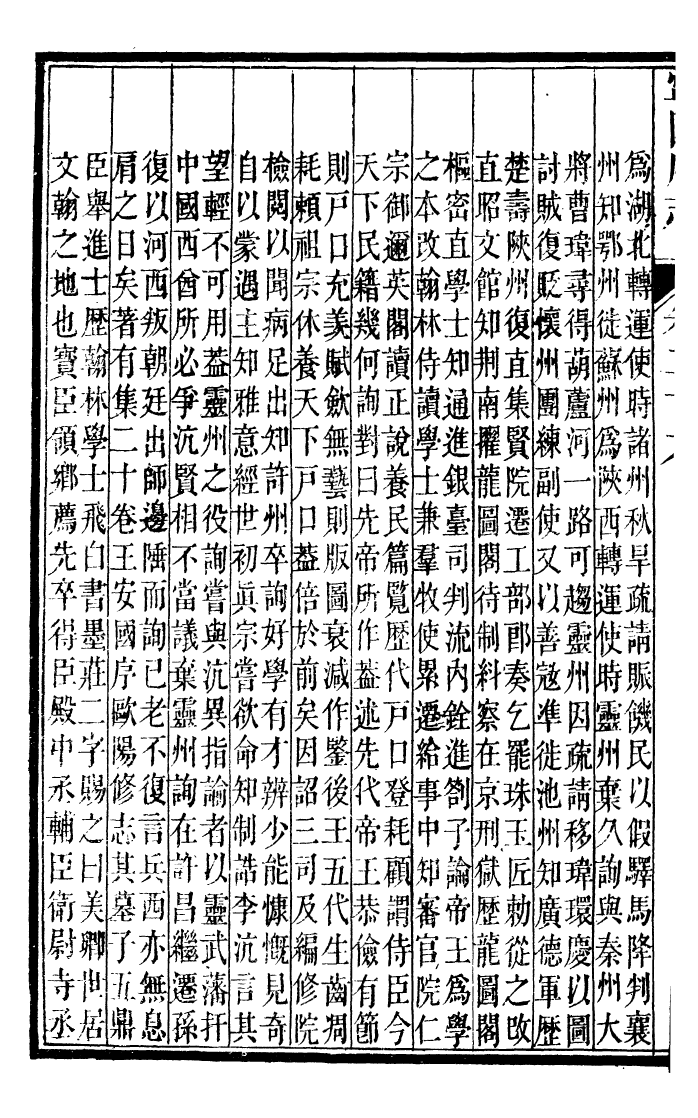 爲湖北轉運使時諸州秋旱疏請賑饑民以假驛馬降判襄
州知鄂州徙蘇州爲陜西轉運使時靈州棄久詢與秦州大
將曹瑋尋得葫蘆河一路可趨靈州因疏請移瑋環慶以圖
討賊復貶懷州團練副使又以善冦凖徙池州知廣德軍歷
楚壽陜州復直集賢院遷工部郎奏乞罷珠玉匠勅從之改
直昭文館知荆南擢龍圖閣待制糾察在京刑獄歷龍圖閣
樞密直學士知通進銀臺司判流内銓進劄子論帝王爲學
之本改翰林侍讀學士兼羣牧使累遷給事中知審官院仁
宗御邇英閣讀正說養民篇覽歷代戸口登耗顧謂侍臣今
天下民籍幾何詢對曰先帝所作葢述先代帝王恭儉有節
則戸口充羨賦歛無藝則版圖衰減作鑒後王五代生齒凋
耗頼祖宗休養天下戸口葢倍於前矣因詔三司及編修院
檢閱以聞病足出知許州卒詢好學有才辨少能慷慨見奇
自以蒙遇主知雅意經世初眞宗嘗欲命知制誥李沆言其
望輕不可用葢靈州之役詢嘗與沆異指論者以靈武藩扞
中國西酋所必爭沆賢相不當議棄靈州詢在許昌繼遷孫
復以河西叛朝廷出師邊陲而詢已老不復言兵西亦無息
肩之日矣著有集二十卷王安國序歐陽修志其墓子五鼎
臣舉進士歷翰林學士飛白書墨莊二字賜之曰美卿世居
文翰之地也寶臣領鄉薦先卒得臣殿中丞輔臣衛尉寺丞